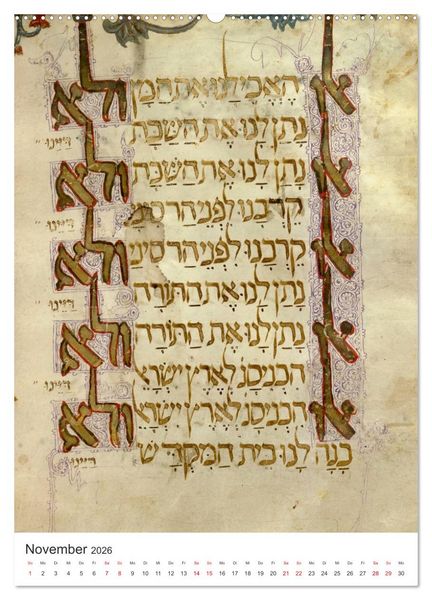 אלו האכילנו את המן ולא
נתן לנו את השבת דיינו
אלו נתן לנו את השבת ולא
קרבנו לפני הר סיני דיינו
אלו קרבנו לפני הר סיני ולא
נתן לנו את התורה דיינו
אלו נתן לנו את התורה ולא
הכניסנו לארץ ישרא דיינו
אלו הכניסנו לארץ ישרא ולא
בנה לנו בית המקדש דיינו
November 2026
So Mo Di Mi Do Fr Sa So Mo Di Mi Do Fr Sa So Mo Di Mi Do Fr Sa So Mo Di Mi Do Fr Sa So Mo
1 2 3 4 5 6 7 8 9 10 11 12 13 14 15 16 17 18 19 20 21 22 23 24 25 26 27 28 29 30